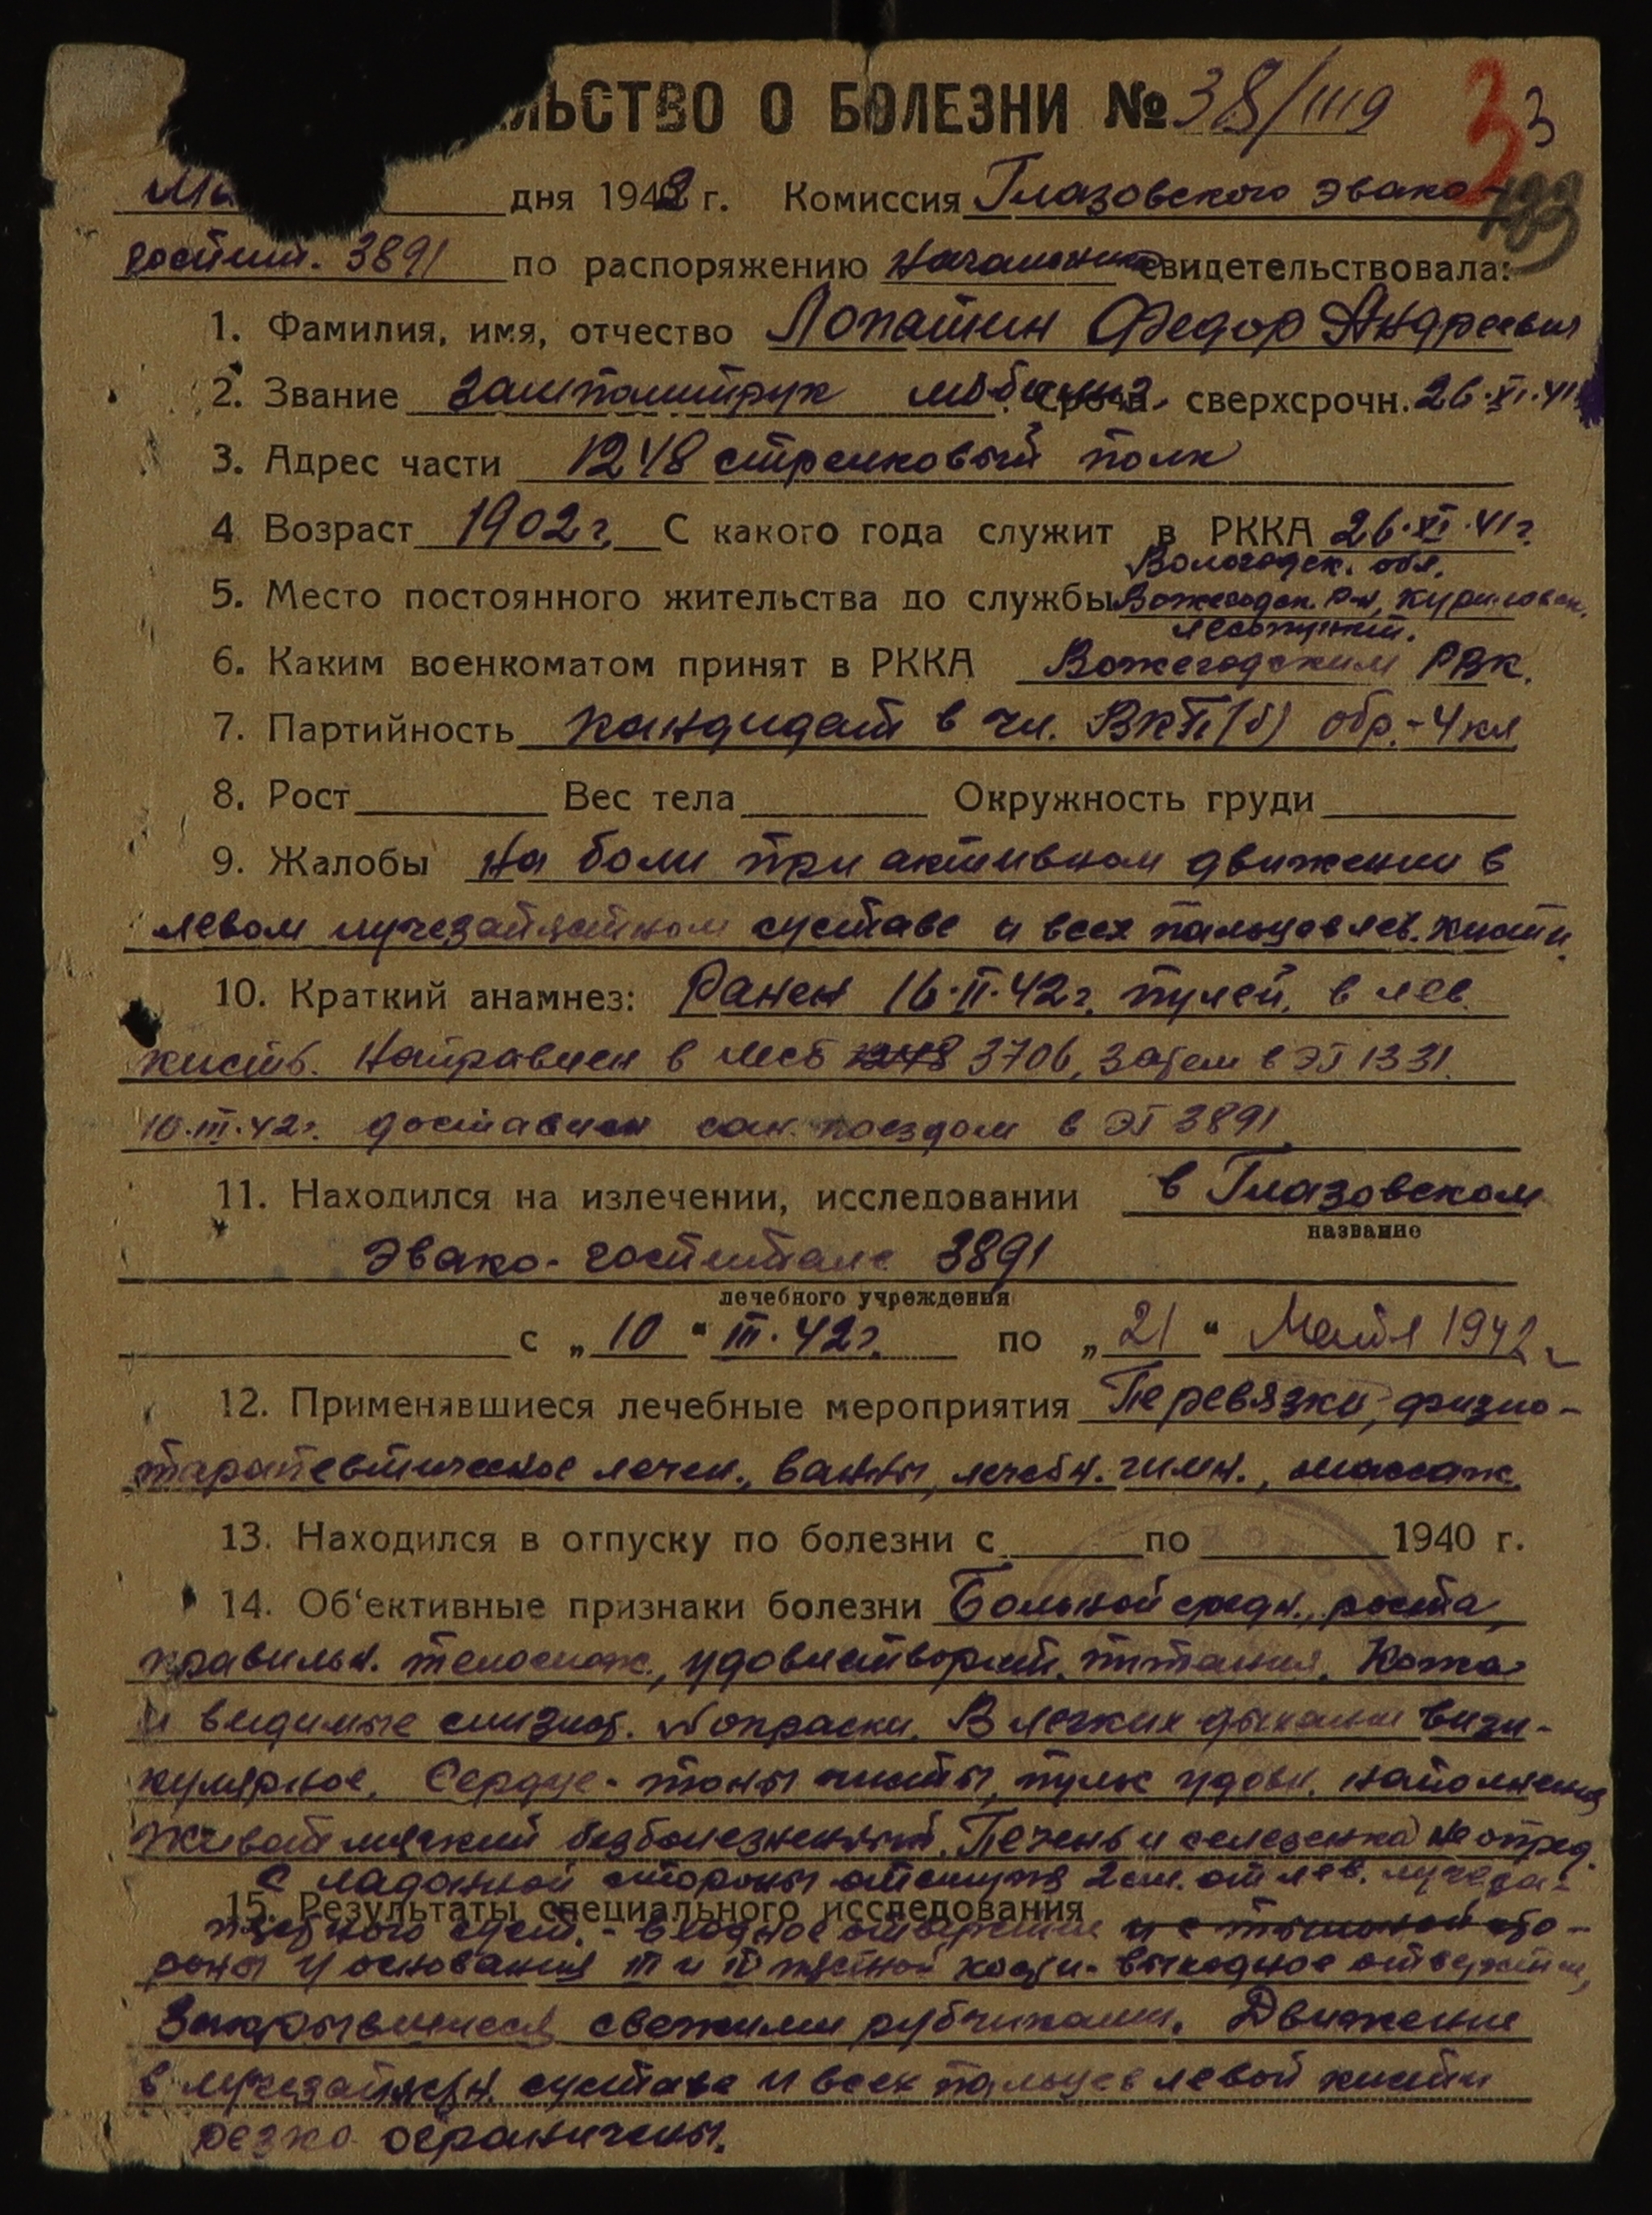 ЛЬСТВО О БОЛЕЗНИ № 38/1119
33
дня 1942 г. Комиссия Глазовского эвако-
госпит. 3891 по распоряжению начальника свидетельствовала:
1. Фамилия, имя, отчество Лопатин Федор Андреевич
2. Звание зам политрук мобилиз. срочн. сверхсрочн. 26.XI.41
3. Адрес части 1248 стрелковый полк
4 Возраст 1902 г. С какого года служит в РККА 26.XI.41 г.
Вологодск. обл.
5. Место постоянного жительства до службы Вожегодск. р-н,
6. Каким военкоматом принят в РККА Вожегодским РВК.
7. Партийность кандидат в чл. ВКП(б) обр.-4 кл
8. Рост Вес тела Окружность груди
9. Жалобы на боли при активном движении в
левом лучезапястном суставе и всех пальцев лев. кисти.
10. Краткий анамнез: Ранен 16.II.42 г. пулей, в лев.
кисть. Направлен в мсб 3706, затем в ЭГ 1331.
10.III.42 г. доставлен сан. поездом в ЭГ 3891.
11. Находился на излечении, исследовании в Глазовском
название
Эвако-госпитале 3891
лечебного учреждения
с „10" III.42 г. по „21" Мая 1942
12. Применявшиеся лечебные мероприятия Перевязки, физио-
тарапевтическое лечен., ванны, лечебн. гимн., массаж.
13. Находился в отпуску по болезни с по 1940 г.
14. Об'ективные признаки болезни Больной средн. роста,
правильн. телослож., удовлетворит. питания. Кожа
и видимые слизист. N окраски. В легких дыхание вези-
кулярное. Сердце - тоны чисты, пульс удовл. наполнения
Живот мягкий безболезненный. Печень и селезенка не опред.
С ладонной стороны отступя 2 см. от лев. лучеза-
15. Результаты специального исследования
пястного суст. - входное отверстие и с тыльной сто-
роны у основания III и IV пястной кости - выходное отверстие,
Закрывшиеся свежими рубчиками. Движение
в лучезапястн. суставе и всех пальцев левой кисти
резко ограничены.